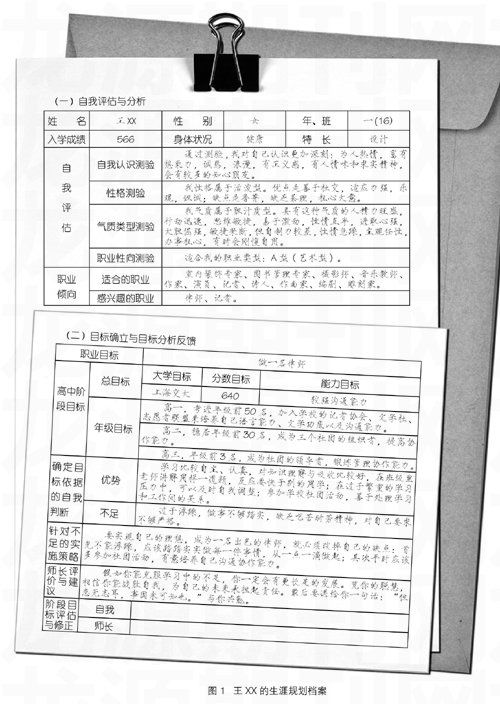 (一)自我评估与分析
姓 名 王XX 性 别 女 年、班 一(16)
入学成绩 566 身体状况 健康 特 长 设计
自我评估
自我认识测验
通过测验,我对自己认识更加深刻:为人热情,富有
想象力,诚恳,浪漫,有正义感,有人情味和求实精神,
会有较多的知心朋友。
性格测验
我性格属于活泼型。优点是善于社交,适应力强,乐
观,
缺乏条理,粗心大意。
气质类型测验
我气质属于胆汁质型。具有这种气质的人精力旺盛,
行动迅速,思维敏捷,易于激动,性情直率,进取心强,
大胆倔强,敏捷果断,但自制力较差,性情急躁,主观任性,
办事粗心,有时会刚愎自用。
职业性向测验
适合我的职业类型:A型(艺术型)。
职业倾向
适合的职业
室内装饰专家、图书管理专家、摄影师、音乐教师、
作家、演员、记者、诗人、作曲家、编剧、雕刻家。
感兴趣的职业
律师、记者。
(二)目标确立与目标分析反馈
职业目标 做一名律师
高中阶段目标
总目标
大学目标 分数目标 能力目标
上海交大 640 较强沟通能力
年级目标
高一,考进年级前50名,加入学校的记者协会、文学社、
志愿者联盟来培养自己语言能力、文学功底以及沟通能力。
高二,稳居年级前30名,成为三个社团的组织者,提高协
作能力。
高三,年级前3名,成为社团的领导者,锻炼管理协作能力。
确定目标依据的自我判断
优势
学习比较自主、认真,对知识理解与吸收比较好,在班级里
老师讲解同样一道题,反应要快于别的同学;在过于繁重的学习
压力中,可以及时自我调整;参加学校社团活动,善于处理学习
和工作间的关系。
不足
过于浮躁,做事不够踏实,缺乏吃苦耐劳精神,对自己要求
不够严格。
针对不足的实施策略
要实现自己的理想,成为一名出色的律师,就必须改掉自己的缺点:首
先不能浮躁,应该踏踏实实做每一件事情,从一点一滴做起;其次平时应该
多参加社团活动,有意培养自己沟通协作能力。
师长评价与建议
假如你能克服学习中的不足,你一定会有更长足的发展。见你的聪慧,
相信你能战胜自我,为自己的未来承担起责任。最后要送给你一句话:“但
与你共勉。
阶段目标评估与修正
自我
师长
图 1 王 XX 的生涯规划档案